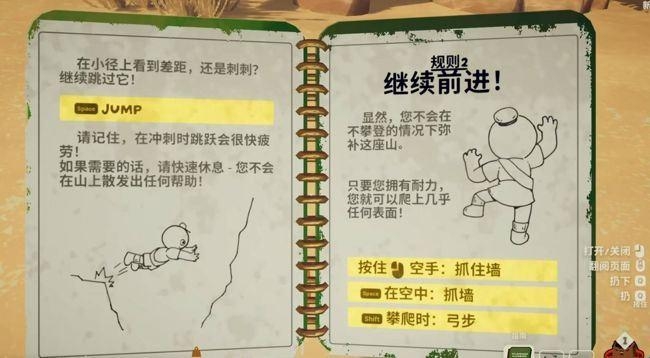 新
在小径上看到差距，还是刺刺？
继续跳过它！
Space JUMP
请记住，在冲刺时跳跃会很快疲
劳！
如果需要的话，请快速休息 - 您不会
在山上散发出任何帮助！
规则2
继续前进！
显然，您不会在
不攀登的情况下弥
补这座山。
只要您拥有耐力，
您就可以爬上几乎
任何表面！
按住 空手：抓住墙
Space 在空中：抓墙
Shift 攀爬时：弓步
打开/关闭
翻阅页面
扔下 Q
扔
按住
指南
1